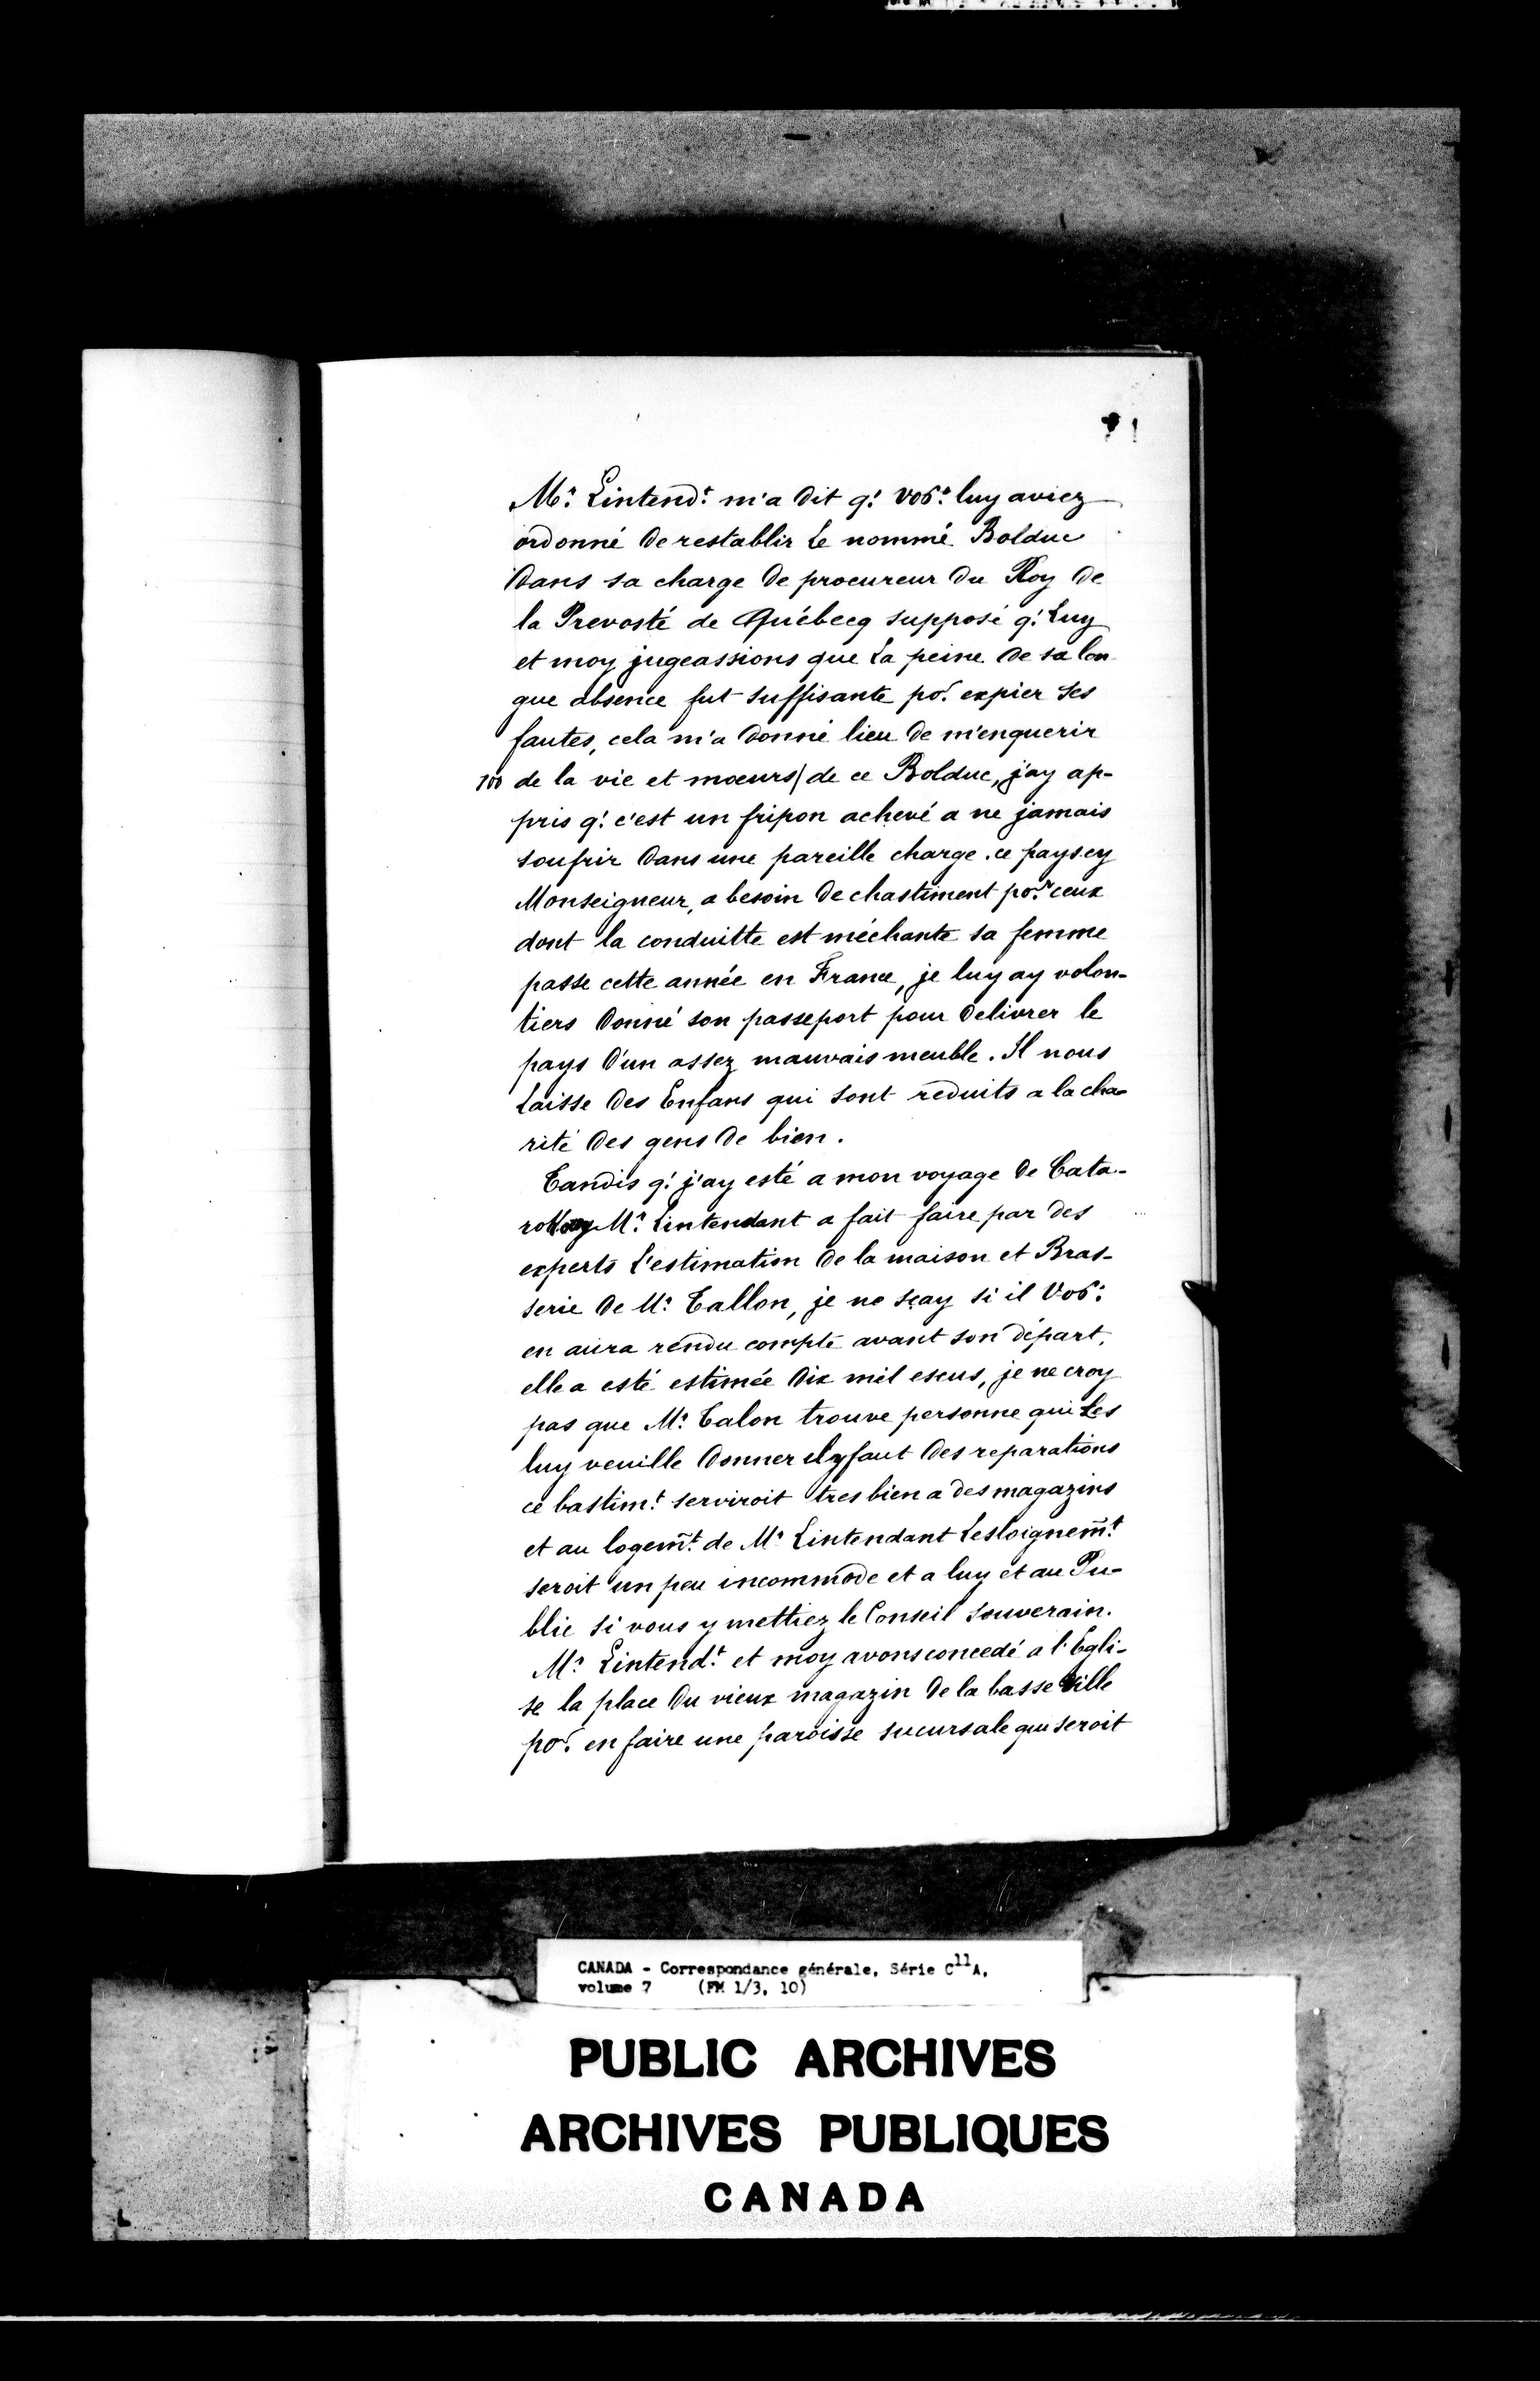 Mr. Lintendt. m'a dit q. vos. luy aviez
ordonné de restablir le nommé Bolduc
dans sa charge de procureur du Roy de
la Prevosté de Québecq supposé q. Luy
et moy jugeassions que La peine de sa lon
gue absence fut suffisante por. expier ses
fautes, cela m'a donné lieu de m'enquerir
100 de la vie et moeurs/ de ce Bolduc, j'ay ap-
pris q. c'est un fripon achevé a ne jamais
soufrir dans une pareille charge. ce pays cy
Monseigneur, a besoin de chastiment por. ceux
dont la conduitte est méchante sa femme
passe cette année en France, je luy ay volon-
tiers donné son passeport pour delivrer le
pays d'un assez mauvais meuble. Il nous
Laisse des Enfans qui sont reduits a la cha-
rité des gens de bien.
Tandis q. j'ay esté a mon voyage de Cata-
Mr. Lintendant a fait faire par des
experts L'estimation de la maison et Bras-
serie de Mr. Tallon, je ne sçay si il Vos.
en aura rendu compte avant son départ,
elle a esté estimée dix mil escus, je ne croy
pas que Mr. Talon trouve personne qui Les
luy veuille donner il y faut des reparations
ce bastimt. serviroit tres bien a des magazins
et au logemt. de Mr. Lintendant Lesloignemt.
seroit un peu incommode et a luy et au Pu-
blic si vous y mettiez le Conseil Souverain.
Mr. Lintendt. et moy avons concedé a l'Egli-
se la place du vieux magazin de la basse Ville
por. en faire une paroisse sucursale qui seroit
CANADA - Correspondance générale, Série C11A,
volume 7 (FM 1/3, 10)
PUBLIC ARCHIVES
ARCHIVES PUBLIQUES
CANADA